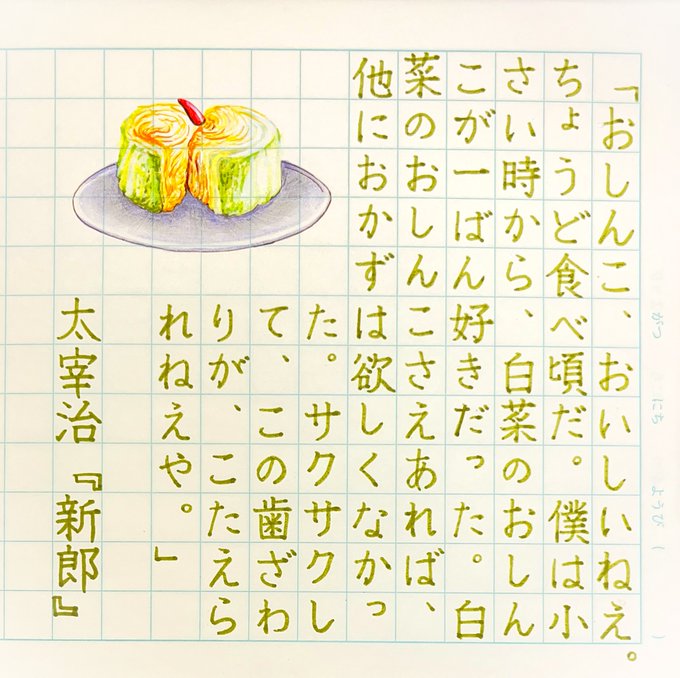 がつ にち ようび ( )
「おしんこ、おいしいねえ。
ちょうど食べ頃だ。僕は小
さい時から、白菜のおしん
こが一ばん好きだった。白
菜のおしんこさえあれば、
他におかずは欲しくなかっ
た。サクサクし
て、この歯ざわ
りが、こたえら
れねえや。」
太宰治『新郎』